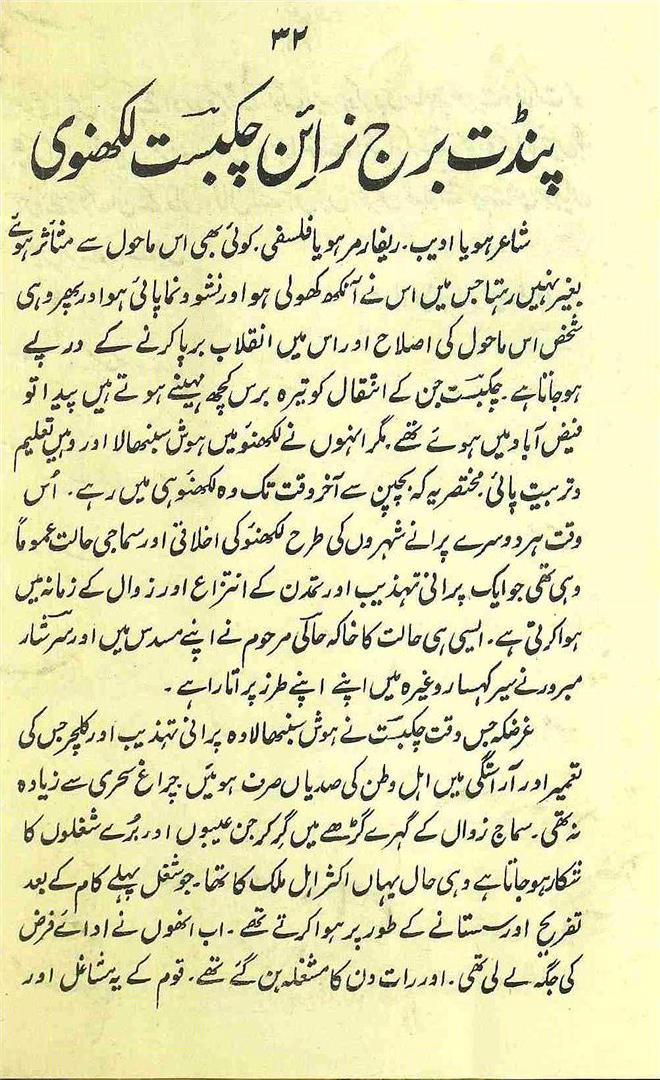 ۳۲
پنڈت برج نرائن چکبست لکھنوی
شاعر ہو یا ادیب۔ ریفارمر ہو یا فلسفی۔ کوئی بھی اس ماحول سے متاثر ہوئے
بغیر نہیں رہتا جس میں اس نے آنکھ کھولی ہو اور نشوونما پائی ہو اور پھر وہی
شخص اس ماحول کی اصلاح اور اس میں انقلاب برپا کرنے کے درپے
ہو جاتا ہے۔ چکبست جن کے انتقال کو تیرہ برس کچھ مہینے ہوتے ہیں پیدا تو
فیض آباد میں ہوئے تھے۔ مگر انہوں نے لکھنؤ میں ہوش سنبھالا اور وہیں تعلیم
و تربیت پائی۔ مختصر یہ کہ بچپن سے آخر وقت تک وہ لکھنؤ ہی میں رہے۔ اُس
وقت ہر دوسرے پرانے شہروں کی طرح لکھنؤ کی اخلاقی اور سماجی حالت عموماً
وہی تھی جو ایک پرانی تہذیب اور تمدن کے انتزاع اور زوال کے زمانہ میں
ہوا کرتی ہے۔ ایسی ہی حالت کا خاکہ حالی مرحوم نے اپنے مسدس میں اور سرشار
مبرور نے سیر کہسار وغیرہ میں اپنے اپنے طرز پر اتارا ہے۔
غرضکہ جس وقت چکبست نے ہوش سنبھالا وہ پرانی تہذیب اور کلچر جس کی
تعمیر اور آراستگی میں اہل وطن کی صدیاں صرف ہوئیں۔ چراغ سحری سے زیادہ
نہ تھی۔ سماج زوال کے گہرے گڑھے میں گر کر جن عیبوں اور بُرے شغلوں کا
شکار ہو جاتا ہے وہی حال یہاں اکثر اہل ملک کا تھا۔ جو شغل پہلے کام کے بعد
تفریح اور سستانے کے طور پر ہوا کرتے تھے۔ اب انھوں نے ادائے فرض
کی جگہ لے لی تھی۔ اور رات دن کا مشغلہ بن گئے تھے۔ قوم کے یہ مشاغل اور